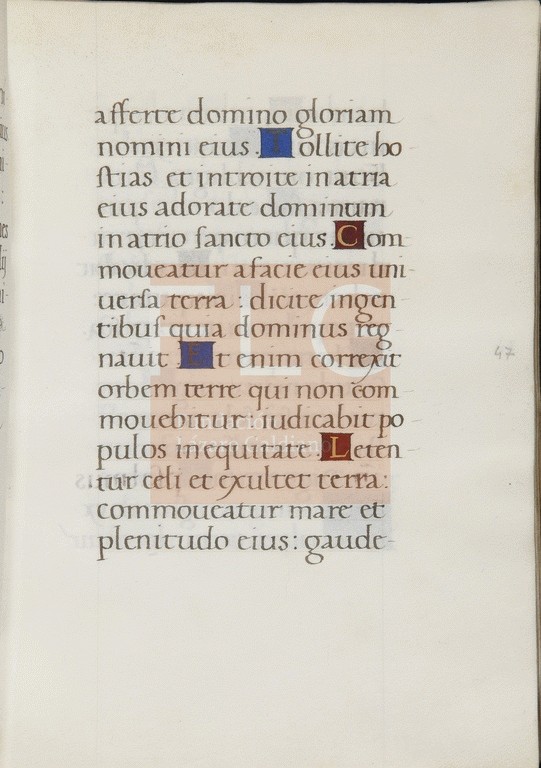 afferte domino gloriam
nomini eius. Tollite ho
ſtias et introite in atria
eius adorate dominum
in atrio ſancto eius. Com
moueatur a facie eius uni-
uerſa terra : dicite in gen
tibuſ quia dominus reg
nauit Et enim correxit
orbem terre qui non com
mouebitur : iudicabit po
pulos in equitate. Leten
tur celi et exultet terra:
commoueatur mare et
plenitudo eius: gaude-
47
FLG
Lázaro Galdiano